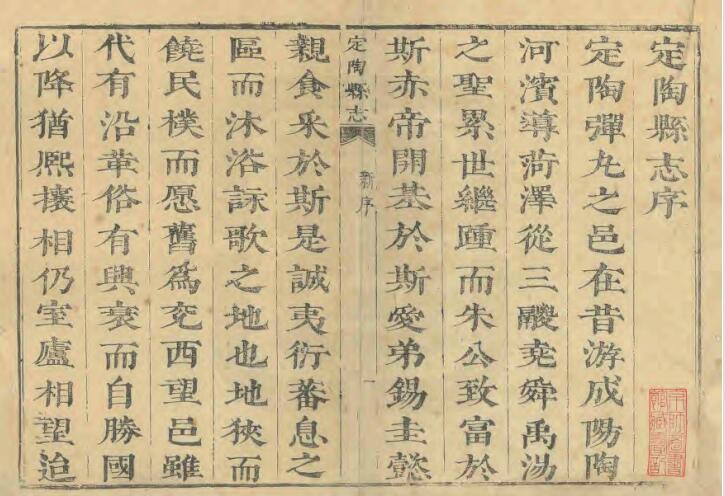 定陶縣志序
定陶彈丸之邑在昔游成陽陶
河濱導菏澤從三鬷堯舜禹湯
之聖累世繼踵而朱公致富於
斯赤帝開基於斯愛弟錫圭懿
定陶縣志
新序
一
親食采於斯是誠夷衍蕃息之
區而沐浴詠歌之地也地狹而
饒民樸而愿舊爲兖西望邑雖
代有沿革俗有興衰而自勝國
以降猶熈攘相仍室廬相望迨